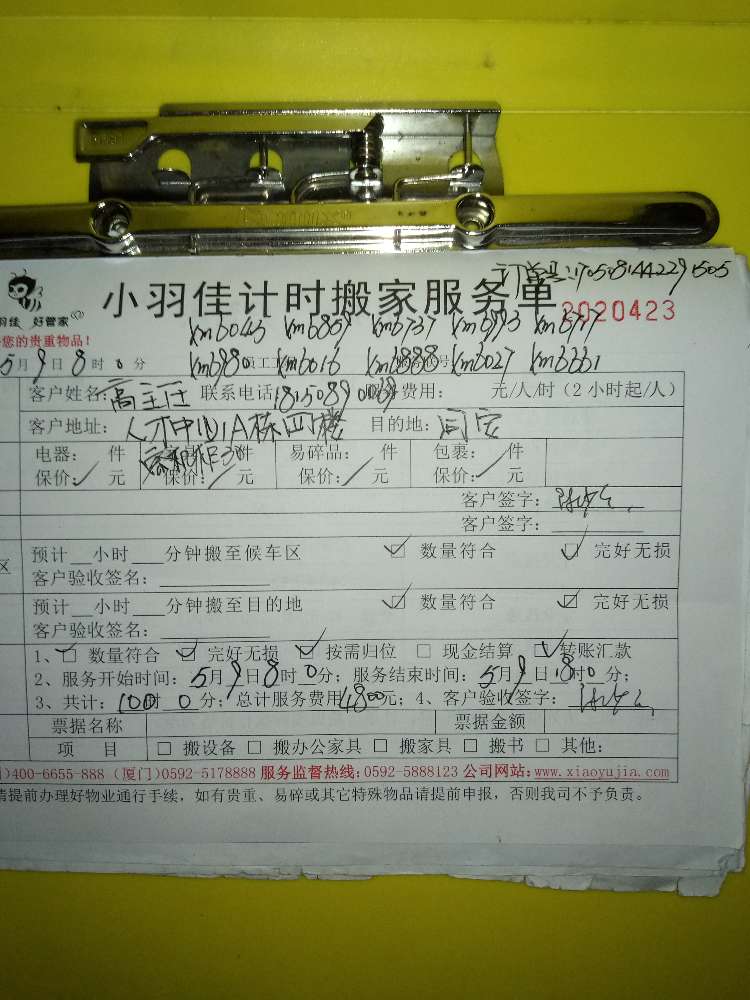 订单号:1705081442291505
小羽佳计时搬家服务单
2020423
羽佳 好管家
您的贵重物品!
km6045 km6859 km6737 km6993 km6977
5月9日8时0分 km6980 员工 km6016 km6888 号 km6027 km6661
客户姓名:高主任 联系电话:费用: 元/人/时(2小时起/人)
客户地址:人才中心A栋四楼 目的地:同安
电器: 件 件 易碎品: 件 包裹: 件
保价:/ 元 保价:/ 元 保价:/ 元 保价:/ 元
客户签字:
客户签字:
预计__小时___分钟搬至候车区 ☑ 数量符合 ☑ 完好无损
客户验收签名:
预计__小时___分钟搬至目的地 ☑ 数量符合 ☑ 完好无损
客户验收签名:
1、☑ 数量符合 ☑ 完好无损 ☑ 按需归位 □ 现金结算 ☑ 转账汇款
2、服务开始时间:5月9日8时0分;服务结束时间:5月9日18时0分;
3、共计:10时0分;总计服务费用4800元;4、客户验收签字:
票据名称 票据金额
项 目 □ 搬设备 □ 搬办公家具 □ 搬家具 □ 搬书 □ 其他:
)400-6655-888 (厦门)0592-5178888 服务监督热线:0592-5888123 公司网站:www.xiaoyujia.com
请提前办理好物业通行手续,如有贵重、易碎或其它特殊物品请提前申报,否则我司不予负责。